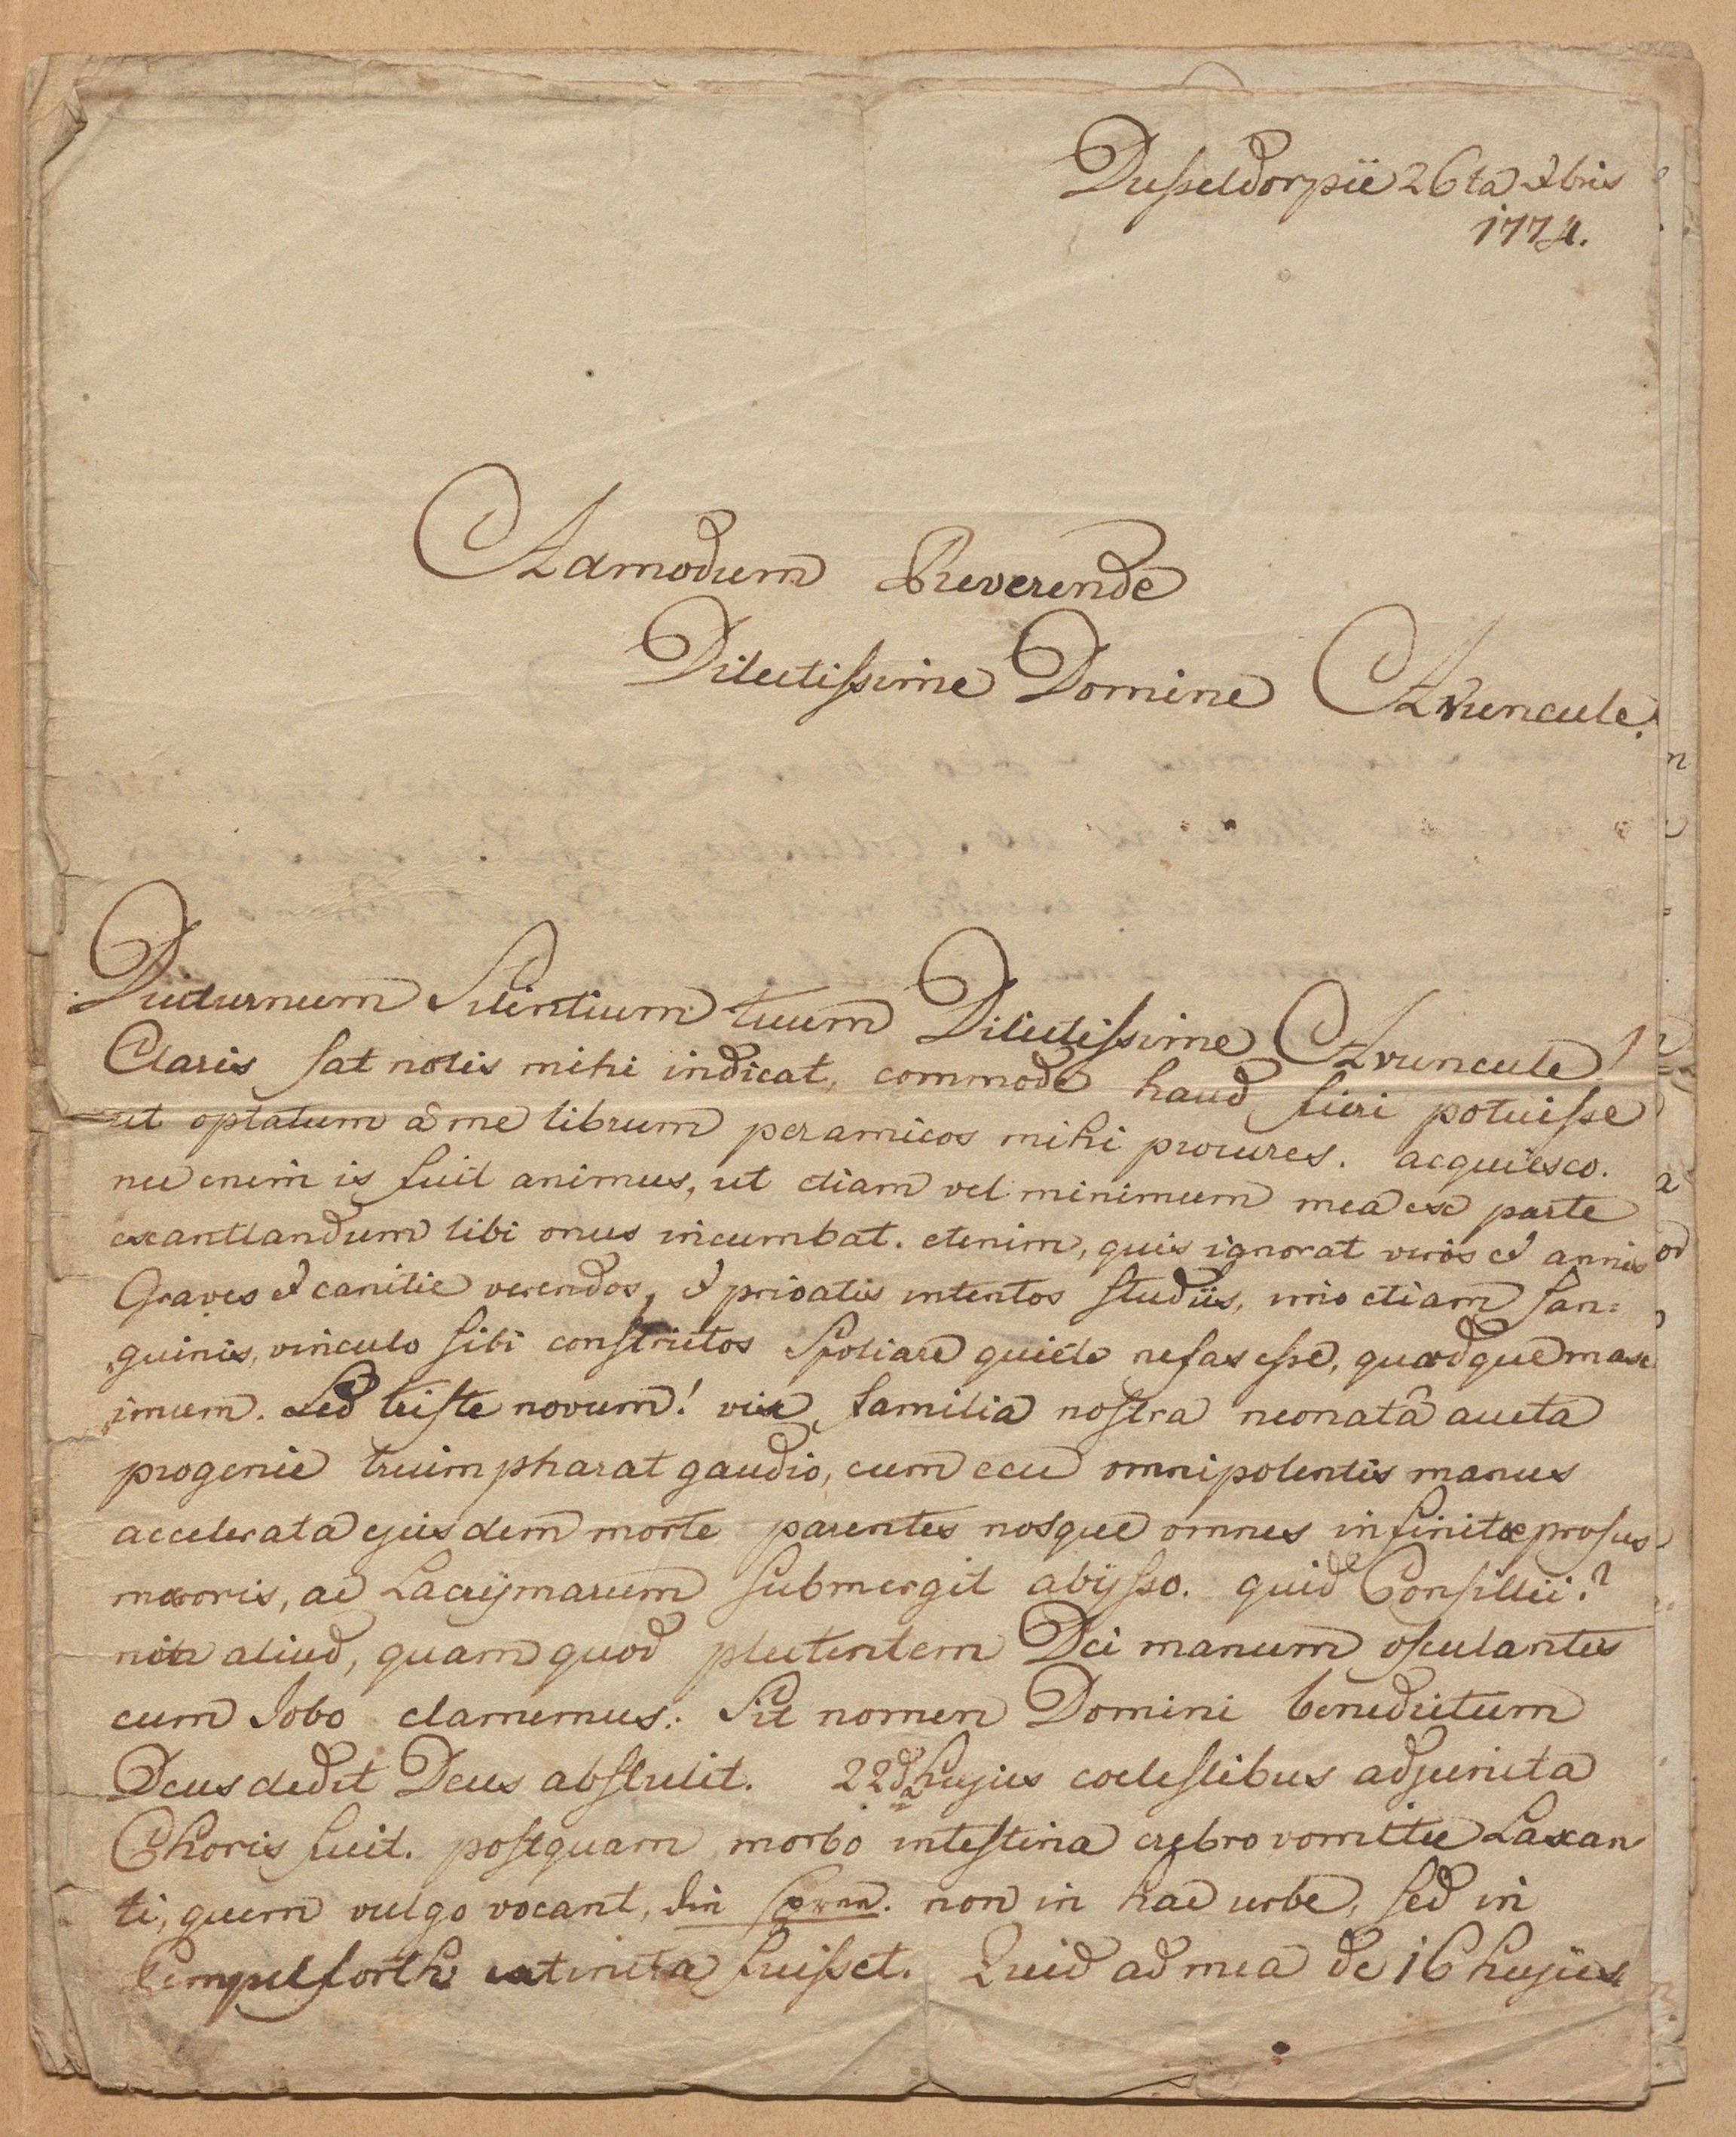 Dusseldorpii 26ta Xbris
1774.
Admodum Reverende
Dilectissime Domine Avuncule.
Diuturnum Silentium tuum Dilectissime Avuncule!
Claris sat notis mihi indicat, commode haud fieri potuisse
ut optatum a me librum per amicos mihi procures. acquiesco.
nec enim is fuit animus, ut etiam vel minimum mea ex parte
exantlandum tibi onus incumbat. etenim, quis ignorat viros et annis
Graves et canitie verendos, et privatis intentos studiis, imo etiam san=
guinis, vinculo sibi constrictos Spoliare quiete nefas esse, quodque max
imum. Sed triste novum! vix familia nostra neonatâ aucta
progenie triumpharat gaudio, cum ecce omnipotentis manus
accelerata ejusdem morte parentes nosque omnes infinitæ prosus
mæroris, ac Lacrÿmarum submergit abÿsso. quid Consillii?
non aliud, quam quod plectentem Dei manum osculantes
cum Jobo clamemus: Sit nomen Domini benedictum
Deus dedit Deus abstulit. 22da hujus coelestibus adjuncta
Choris fuit. postquam morbo intestina crebro vomitu Laxan
ti, quem vulgo vocant, non in hac urbe, sed in
Pempelforth extincta fuisset. Quid ad mea de 16 hujus